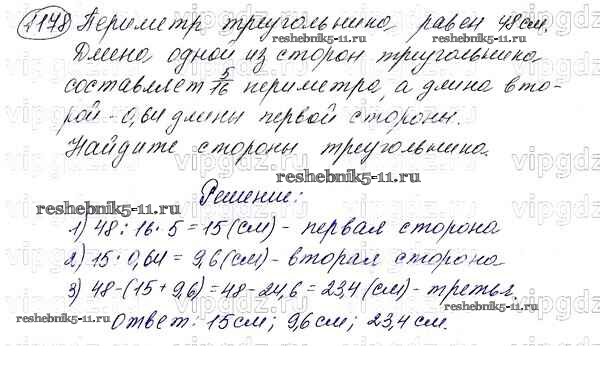 1178 Периметр треугольника равен 48 см.
reshebnik5-11.ru
Длина одной из сторон треугольника
составляет 5/16 периметра, а длина вто-
рой - 0,64 длины первой стороны.
Найдите стороны треугольника.
reshebnik5-11.ru
Решение:
reshebnik5-11.ru
1) 48 : 16 · 5 = 15 (см) - первая сторона
2) 15 · 0,64 = 9,6 (см) - вторая сторона
3) 48 - (15 + 9,6) = 48 - 24,6 = 23,4 (см) - третья.
reshebnik5-11.ru
reshebnik5-11.ru
Ответ: 15 см; 9,6 см; 23,4 см.
vipgdz.ru